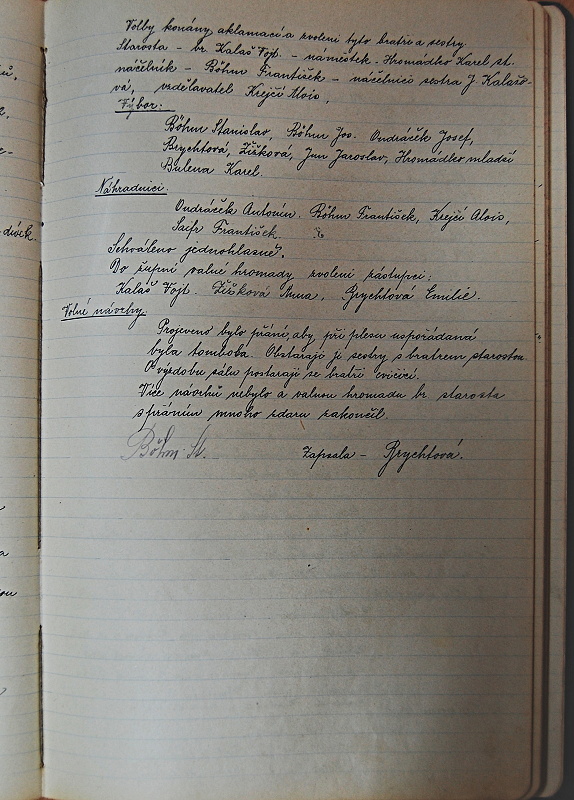 Volby konány aklamací a zvoleni tyto bratři a sestry.
Starosta - br. Kalaš Vojt. - náměstek - Hromádko Karel st.
náčelník - Böhm František - náčelnice sestra J. Kalašo-
vá, vzdělavatel Krejčí Alois,
Výbor.
Böhm Stanislav, Böhm Jos. Ondráček Josef,
Brychtová, Žižková, Jun Jaroslav, Hromádko mladší
Bulena Karel.
Náhradníci.
Ondráček Antonín. Böhm František, Krejčí Alois,
František.
Schváleno jednohlasně.
Do župní valné hromady zvoleni zástupci:
Kalaš Vojt. Žižková Anna, Brychtová Emilie.
Volné návrhy.
Projeveno bylo přání, aby při plesu uspořádaná
byla tombola. Obstarají ji sestry s bratrem starostou.
O výzdobu sálu postarají se bratři cvičící.
Více návrhů nebylo a valnou hromadu br. starosta
s přáním mnoho zdaru zakončil.
Böhm St. Zapsala - Brychtová.
divek.